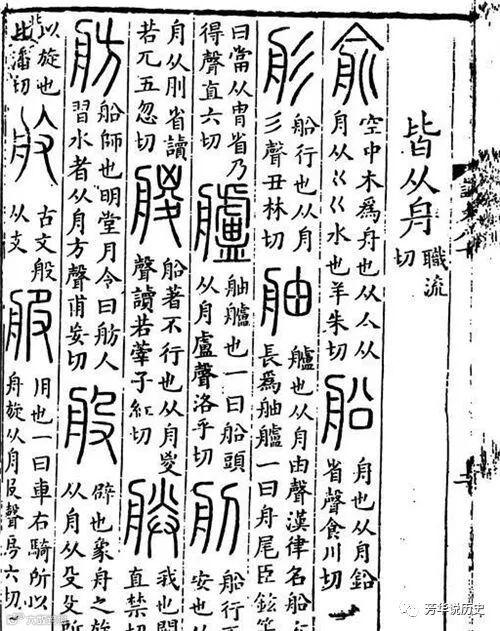 皆从舟 職流
切
俞 空中木爲舟也从亼从
舟从巜巜水也羊朱切
船 舟也从舟鉛
省聲食川切
彤 船行也从舟
彡聲丑林切
舳 艫也从舟由聲漢律名船
長爲舳艫一曰舟尾臣鉉等
曰當从冑省乃
得聲直六切
艫 舳艫也一曰船頭
从舟盧聲洛乎切
𦨉 船行不
安也从
舟从刖省讀
若兀五忽切
艐 船著不行也从舟㚇
聲讀若䔿子紅切
朕 我也闕
直禁切
舫 船師也明堂月令曰舫人
習水者从舟方聲甫妄切
般 辟也象舟之旋
从舟从殳殳所
以旋也
北潘切
古文般
从攴
服 用也一曰車右騎所以
舟旋从舟𠬝聲房六切
芳华说历史